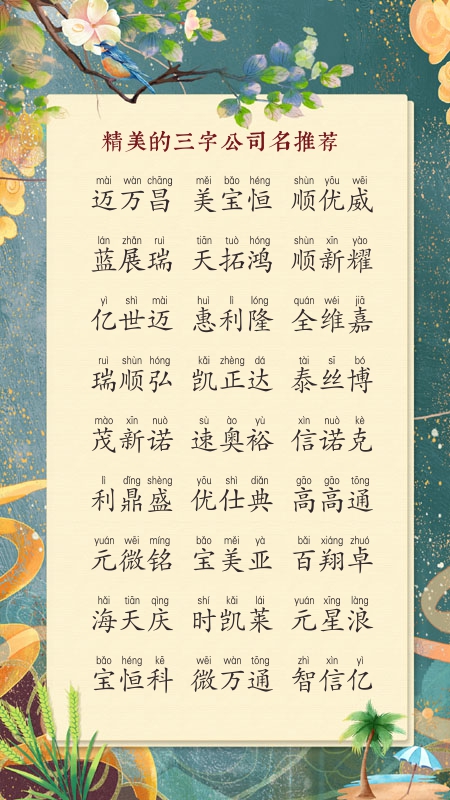 精美的三字公司名推荐
mài wàn chāng měi bǎo héng shùn yōu wēi
迈万昌 美宝恒 顺优威
lán zhǎn ruì tiān tuò hóng shùn xīn yào
蓝展瑞 天拓鸿 顺新耀
yì shì mài huì lì lóng quán wéi jiā
亿世迈 惠利隆 全维嘉
ruì shùn hóng kǎi zhèng dá tài sī bó
瑞顺弘 凯正达 泰丝博
mào xīn nuò sù ào yù xìn nuò kè
茂新诺 速奥裕 信诺克
lì dǐng shèng yōu shì diǎn gāo gāo tōng
利鼎盛 优仕典 高高通
yuán wēi míng bǎo měi yà bǎi xiáng zhuó
元微铭 宝美亚 百翔卓
hǎi tiān qìng shí kǎi lái yuán xīng làng
海天庆 时凯莱 元星浪
bǎo héng kē wēi wàn tōng zhì xìn yì
宝恒科 微万通 智信亿